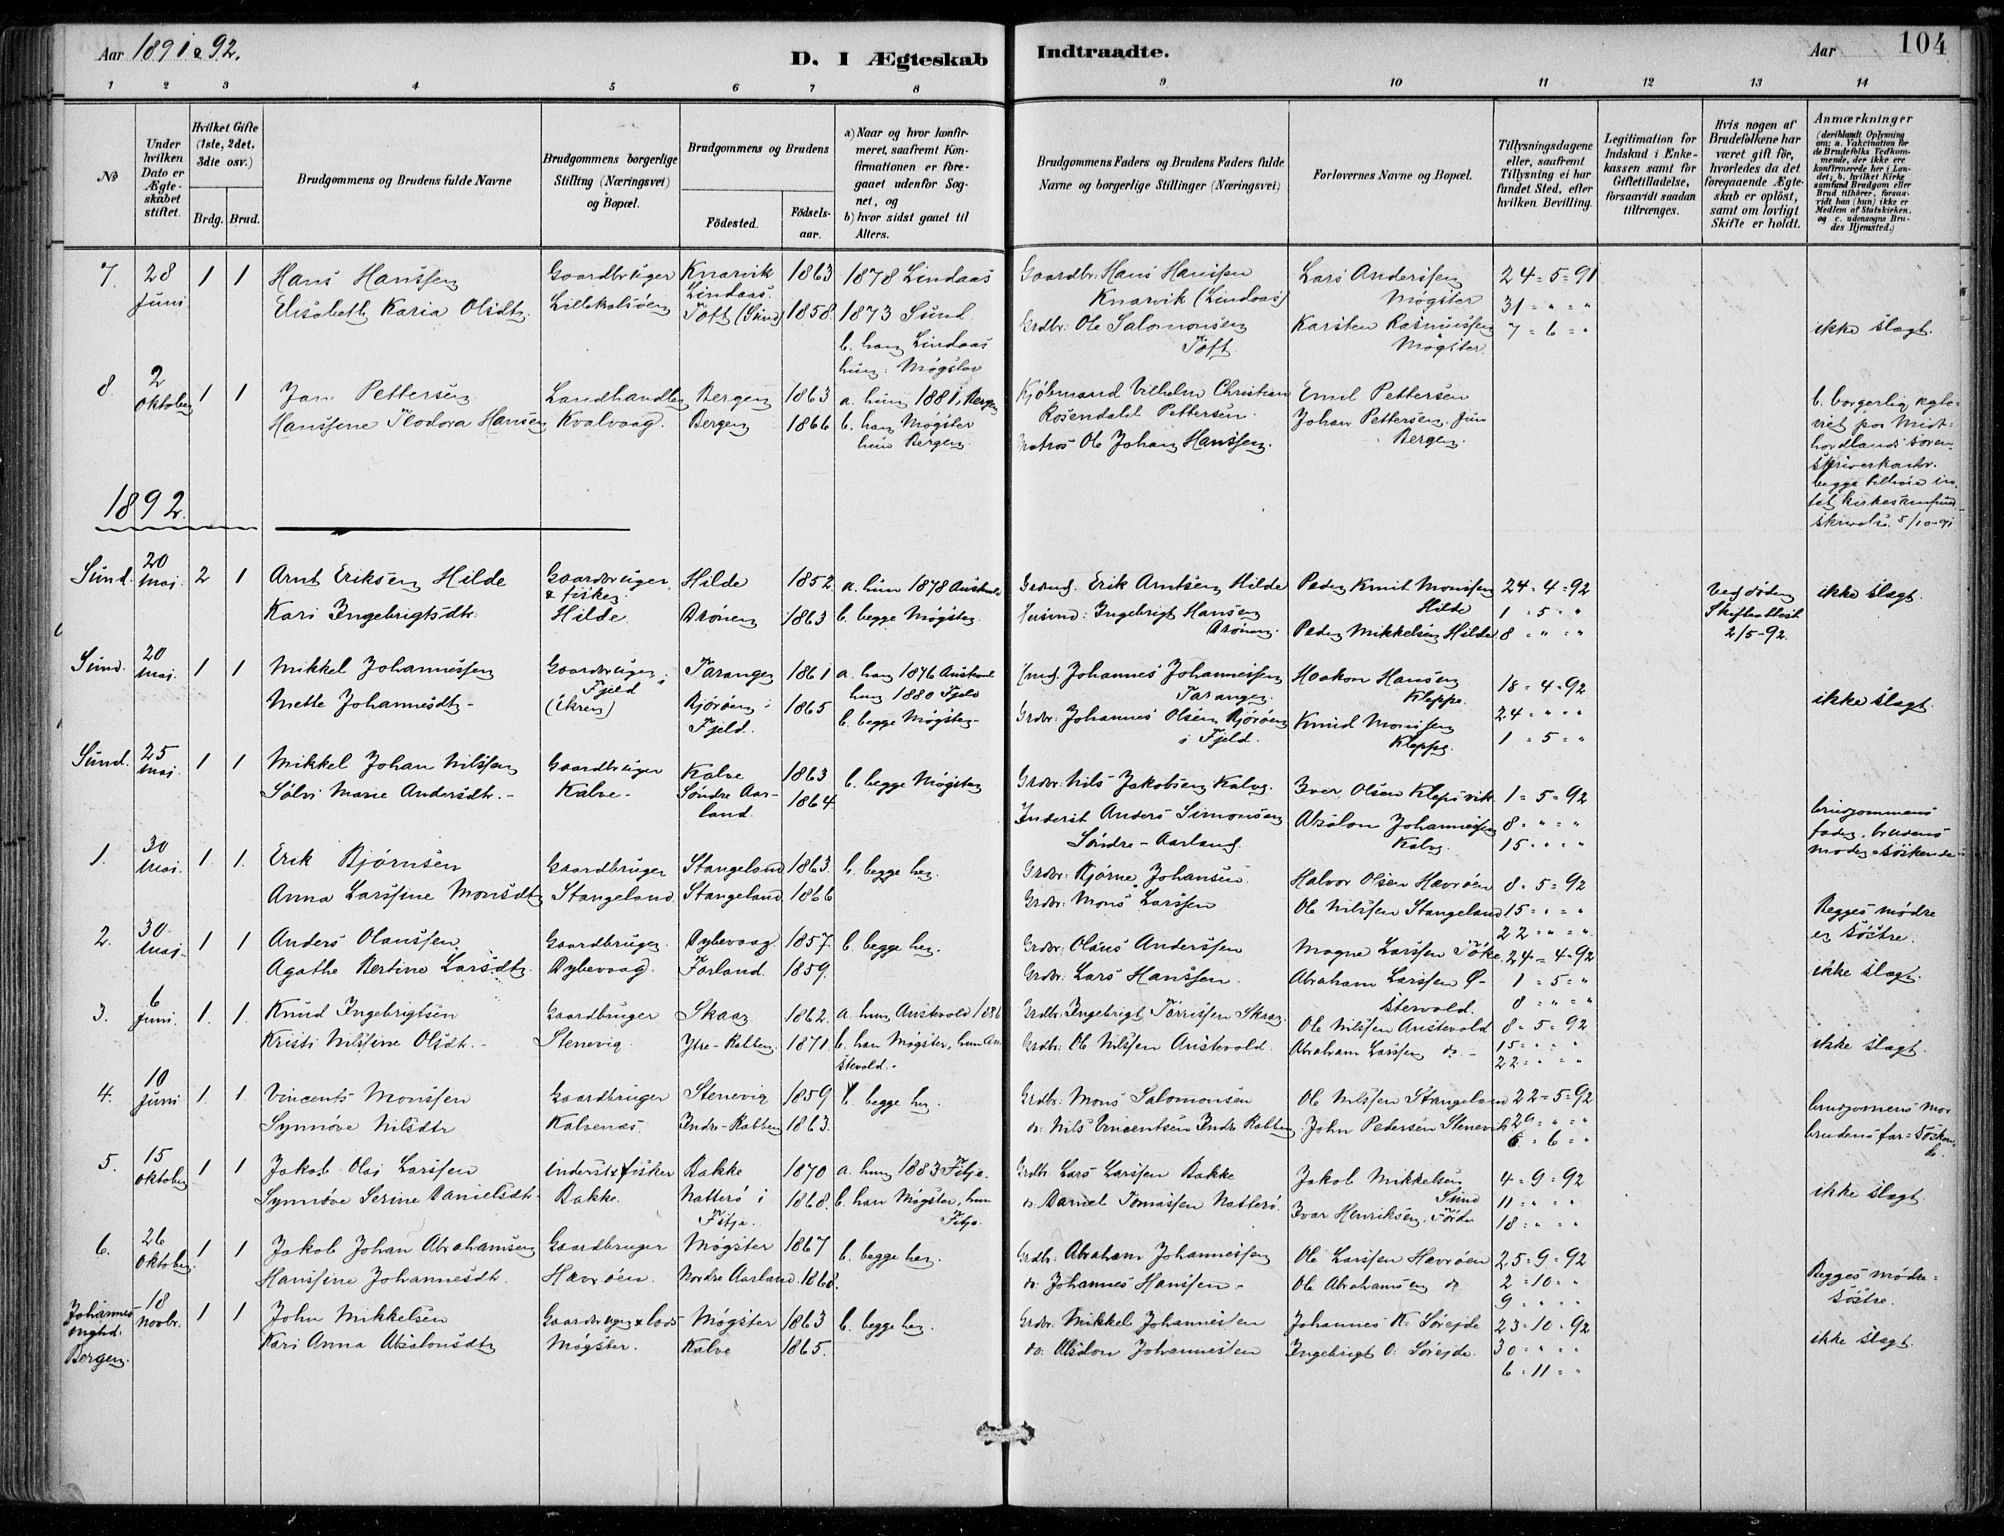 Aar 1891 & 92.
D. I Ægteskab Indtraadte.
Aar
104
1 2 3 4 5 6 7 8 9 10 11 12 13 14
No
Under hvilken Dato er Ægteskabet stiftet.
Hvilket Gifte (1ste, 2det, 3die osv.)
Brdg. Brud.
Brudgommens og Brudens fulde Navne
Brudgommens borgerlige Stilling (Næringsvei) og Bopæl.
Brudgommens og Brudens
Fødested.
Fødselsaar.
a) Naar og hvor konfirmeret, saafremt Konfirmationen er foregaaet udenfor Sognet, og
b) hvor sidst gaaet til Alters.
Brudgommens Faders og Brudens Faders fulde Navne og borgerlige Stillinger (Næringsvei)
Forlovernes Navne og Bopæl.
Tillysningsdagene eller, saafremt Tillysning ei har fundet Sted, efter hvilken Bevilling.
Legitimation for Indskud i Enkekassen samt for Giftetilladelse, forsaavidt saadan tiltrænges.
Hvis nogen af Brudefolkene har været gift før, hvorledes da det foregaaende Ægteskab er opløst, samt om lovligt Skifte er holdt.
Anmærkninger
(deriblandt Oplysning om: a. Vakcination for de Brudefolks Vedkommende, der ikke ere konfirmerede her i Landet; b. hvilket Kirkesamfund Brudgom eller Brud tilhører, forsaavidt han (hun) ikke er Medlem af Statskirken, og c. udensogns Brudes Hjemsted.)
7. 28 Juni 1 1 Hans Hanssen Gaardbruger Knarvik Lindaas. 1863 1878 Lindaas Gaardbr. Hans Hanssen Knarvik (Lindaas) Lars Anderssen Møgster 24 = 5 = 91
Elisabeth Karia Olsdtr. Lillekalsøen Toft (Sund) 1858. 1873 Sund. Grdbr: Ole Salomonsen Toft Karsten Rasmussen Møgster 31 = " = "
b. han Lindaas hun: Møgster 7 = 6 = " ikke slægt.
8. 2 Oktober 1 1 Jan Pettersen Landhandler Bergen 1863 a. hun 1881, Bergen Kjøbmand Vilhelm Christian Rosendahl Pettersen. Emil Pettersen
Hanssine Teodora Hansen Kvalvaag. Bergen 1866 b. han Møgster hun Bergen. Matros Ole Johan Hanssen. Johan Pettersen, Jun Bergen.
b. borgerlig egteviet paa Midthordlands sorenskriverkontor. begge tilhøre intet kirkesamfund 5/10-91
1892.
Sund. 20 Mai. 2 1 Arnt Eriksen Hilde Gaardbruger & fisker Hilde 1852. a. hun 1878 Austevold Erik Arntsen Hilde Peder Knut Monssen Hilde 24 = 4 = 92
Kari Ingebrigtsdtr. Hilde Drönen 1863 b. begge Møgster. Husmd: Ingebrigt Hansen Drönen. Peder Mikkelsen Hilde 1 = 5 = "
8 = " = " ved døden Skifteattest 2/5-92. ikke slægt.
Sund. 20 Mai. 1 1 Mikkel Johannessen Gaardbruger i Fjeld Taranger 1861 a. han 1876 Austevold hun 1880 Fjeld Johannes Johannessen Taranger. Haakon Hansen Kleppe. 18 = 4 = 92
Mette Johannesdtr - Bjørøen i Fjeld. 1865 b. begge Møgster - Grdbr: Johannes Olsen Bjørøen i Fjeld. Knud Monssen Kleppe. 24 = " = "
1 = 5 = " ikke slægt.
Sund. 25 Mai. 1 1 Mikkel Johan Nilssen Gaardbruger Kalve 1863 b. begge Møgster Grdbr: Nils Jakobsen Kalve. Iver Olsen Klepsvik 1 = 5 = 92
Sølvi Marie Andersdtr. - Kalve - Søndre Aarland. 1864. Inderst Anders Simonsen Søndre-Aarland Absalon Johannessen Kalve. 8 = " = "
15 = " = " brudgommens fader, brudens moder = søskende
1. 30 Mai. 1. 1. Erik Bjørnsen Gaardbruger Stangeland 1863. b. begge her. Grdbr: Bjørne Johansen. Halvor Olsen Havrøen 8 = 5 = 92
Anna Larssine Monsdtr. Stangeland. Stangeland. 1866 Grdbr: Mons Larssen Ole Nilssen Stangeland 15 = " = "
22 = " = " Begges mødre er søstre.
2. 30 Mai. 1 1 Anders Olanssen Gaardbruger. Dybevaag 1857. b. begge her. Grdbr: Olaus Anderssen Magne Larssen Föke 24 = 4 = 92
Agathe Bertine Larsdtr. Dybevaag. Førland. 1859. Grdbr: Lars Hanssen. Abraham Larssen Østervold. 1 = 5 = "
8 = " = " ikke slægt.
3. 6 Juni. 1. 1. Knud Ingebrigtsen Gaardbruger 1862. a. hun Austevold 1886 Grdbr: Ingebrigt Tørrissen Ole Nilssen Austevold 8 = 5 = 92
Kristi Nilssine Olsdtr. - Stenevig. Ytre-Rabben. 1871. b. han Møgster, hun Austevold. - Grdbr: Ole Nilssen Austevold. Abraham Larssen do - 15 = " = "
22 = " = " ikke slægt.
4. 10 Juni 1. 1. Vincents Monssen Gaardbruger Stenevig 1859 b. begge her. Grdbr: Mons Salomonsen Ole Nilssen Stangeland 22 = 5 = 92
Synnøve Nilsdtr Kalvenæs. Indre-Rabben 1863. do: Nils Vincentsen Indre Rabben. John Pedersen Stenevik 29 = " = "
6 = 6 = " brudgommens mor brudens far = søskende.
5. 15 Oktober 1 1 Jakob Olai Larssen inderst & fisker Bakke 1870 a. hun 1883 Fitje. Grdbr Lars Larssen Bakke Jakob Mikkelsen Sund 4 = 9 = 92
Synnøve Serine Danielsdtr. Bakke. Natterö i Fitje. 1868. b. han Møgster, hun Fitje. do. Daniel Tomassen Natterö. Ivar Henriksen, Förde 11 = " = "
18 = " = " ikke slægt.
6. 26 Oktober. 1 1 Jakob Johan Abrahamsen Gaardbruger Møgster 1867 b. begge her. Grdbr. Abraham Johannessen Ole Larssen Havrøen 25 = 9 = 92
Hanssine Johannesdtr. Havrøen. Nordre Aarland. 1868. do: Johannes Hanssen - Ole Abrahamsen do 2 = 10 = "
9 " " " Begges mødre = søstre.
Johannes mghd. Bergen. 18 Novbr. 1 1 John Mikkelsen Gaardbruger & lods Møgster 1863 b. begge her. Grdbr. Mikkel Johannessen Johannes K. Sørejde 23 = 10 = 92
Kari Anna Absalonsdtr Møgster. Kalve 1865. do: Absalon Johannessen Ingebrigt O. Sørejde. 30 = " = "
6 = 11 = " ikke slægt.